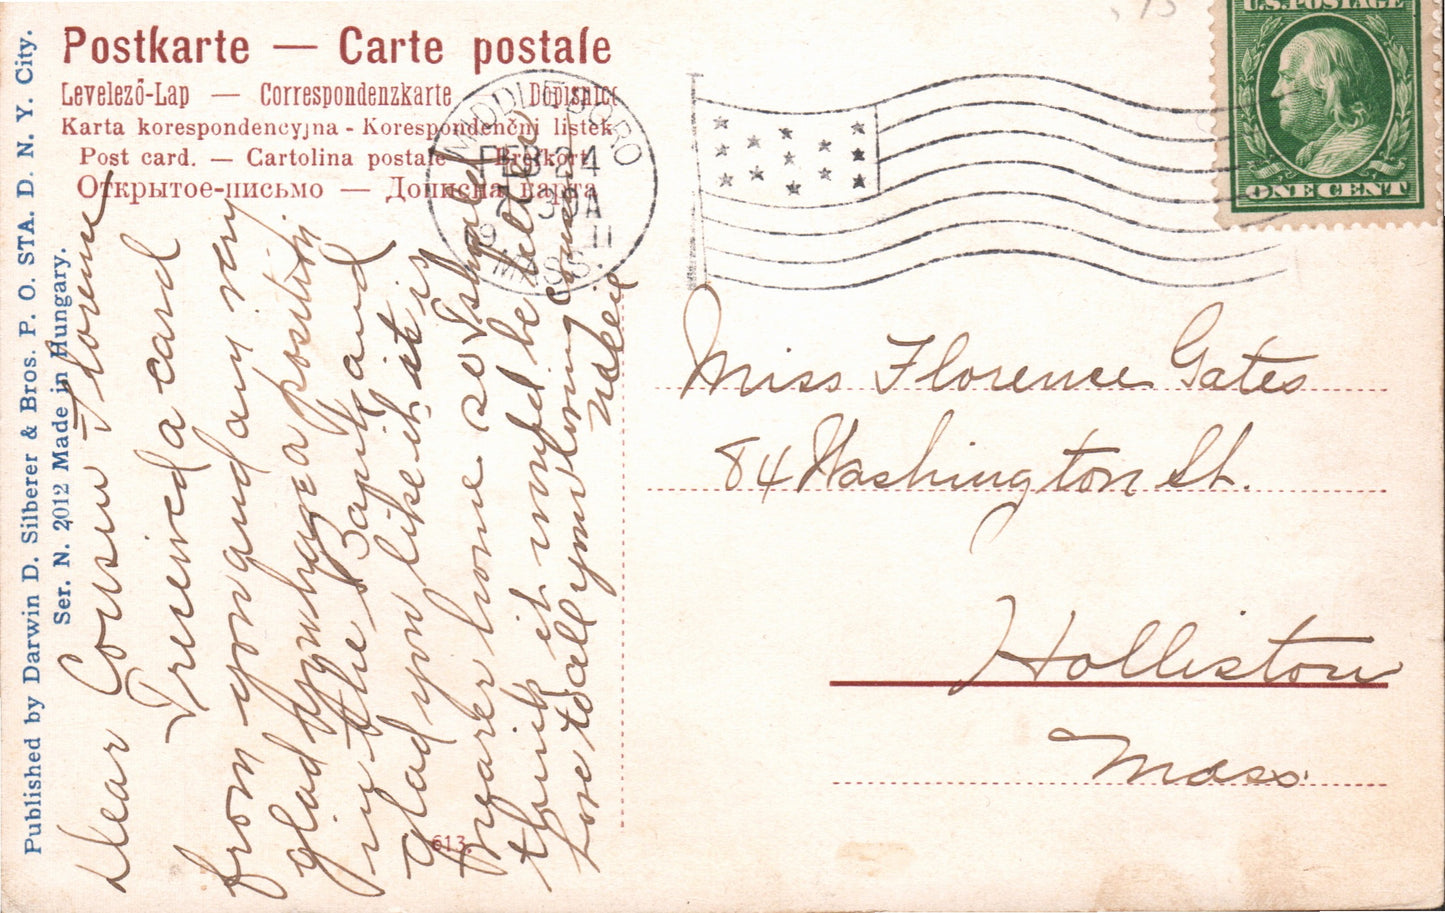 U.S. POSTAGE
ONE CENT
Postkarte — Carte postale
Levelező-Lap — Correspondenzkarte — Dopisnice
Karta korespondencyjna - Korespondenčni listek
Post card. — Cartolina postale — Brefkort
Открытое-письмо — Дописна карта
MIDDLEBORO
FEB 24
7 30A
1911
MASS.
Published by Darwin D. Silberer & Bros. P. O. STA. D. N. Y. City.
Ser. N. 2012 Made in Hungary.
Dear Cousin Florence
I received a card
from you and am very
glad you have a position
in the Bank and
glad you like it. it is
nearer home so I should
think it would be better
Love to all your loving cousin
613.
Miss Florence Gates
84 Washington St.
Holliston
Mass.